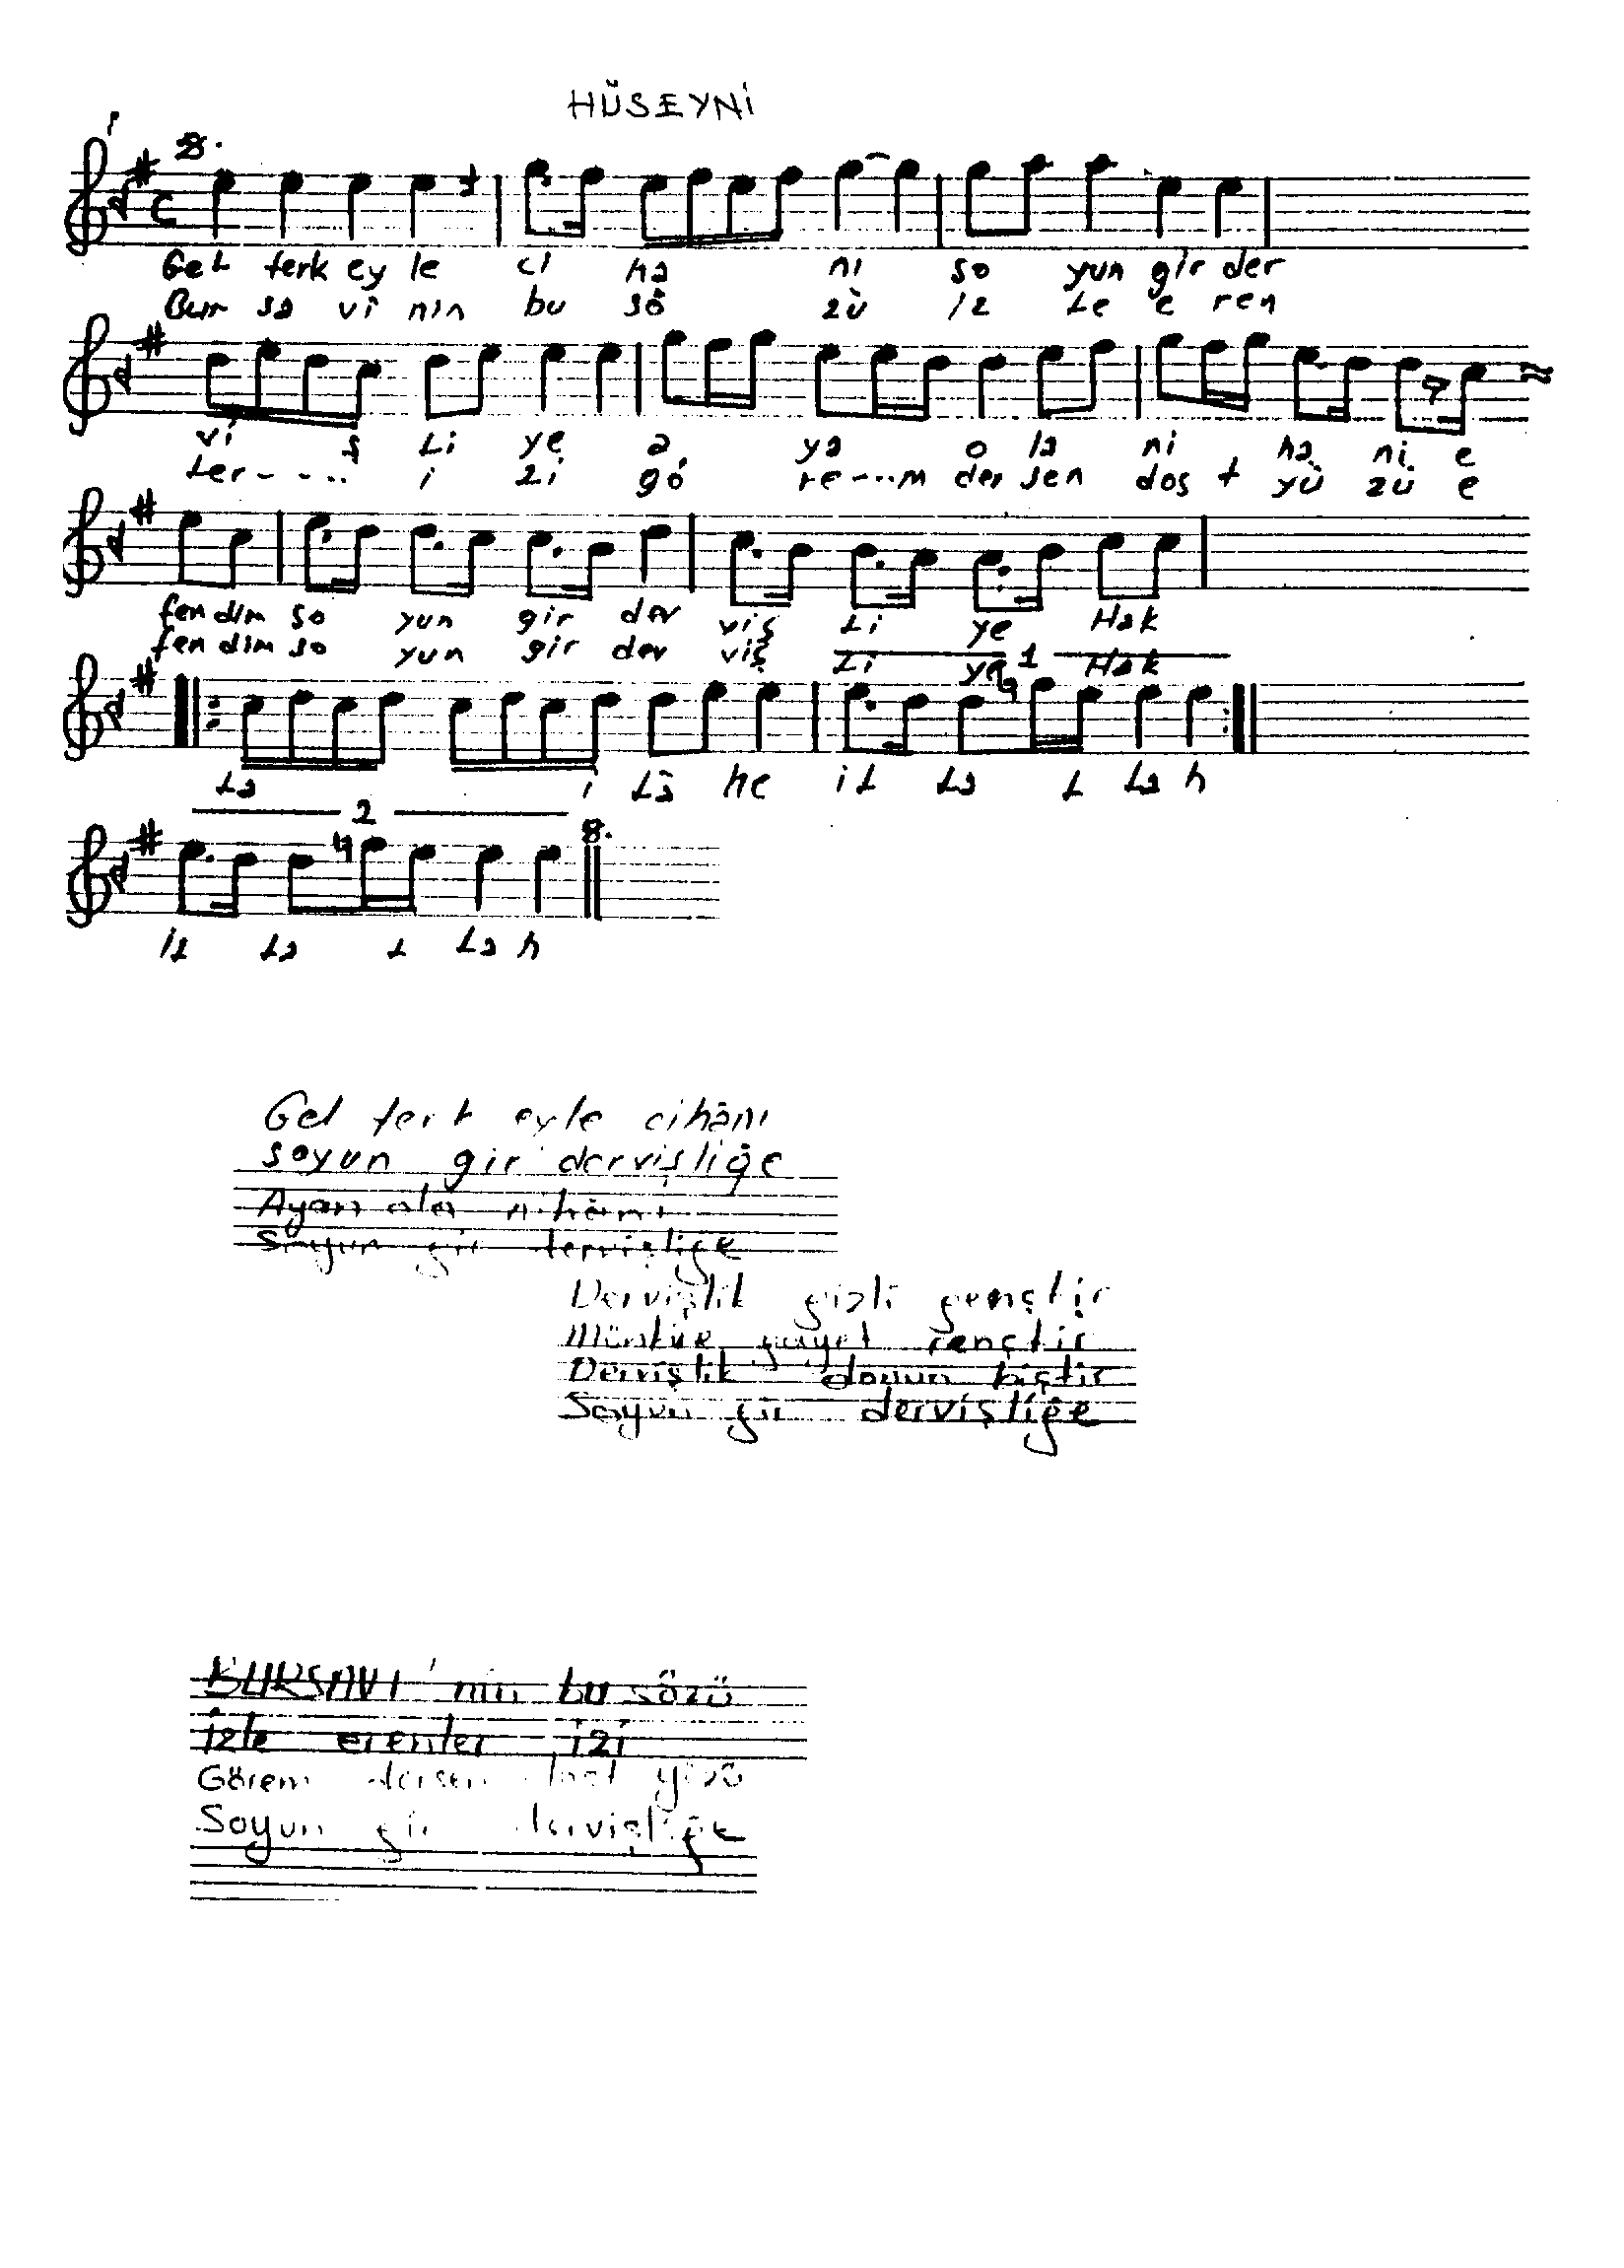 HÜSEYNİ
Gel terk ey le ci ha ni so yun gir der
Bur sa vî nin bu sö zü iz le e ren
vi ş li ye a ya o la ni ha ni e
ler - - ... i zi gö re - ... m der sen dos t yü zü e
fen dim so yun gir der viş li ye Hak
fen dim so yun gir der viş li ye Hak
1
La i Lâ he iL La L La h
2
iL La L La h
Gel terk eyle cihânı
soyun gir dervişliğe
Ayan olan nihâni
Soyun gir dervişliğe
Dervişlik gizli gençtir
Münkire gayet rençtir
Dervişlik
Soyun gir dervişliğe
BURSAVİ'nin bu sözü
İzle erenler izi
Görem dersen dost yüzü
Soyun gir dervişliğe